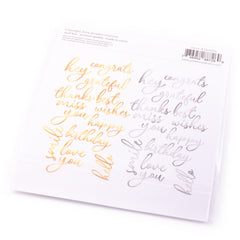 hey congrats
grateful
thanks best
miss wishes
you happy
birthday
smile love
you hello
hey congrats
grateful
thanks best
miss wishes
you happy
birthday
smile love
you hello